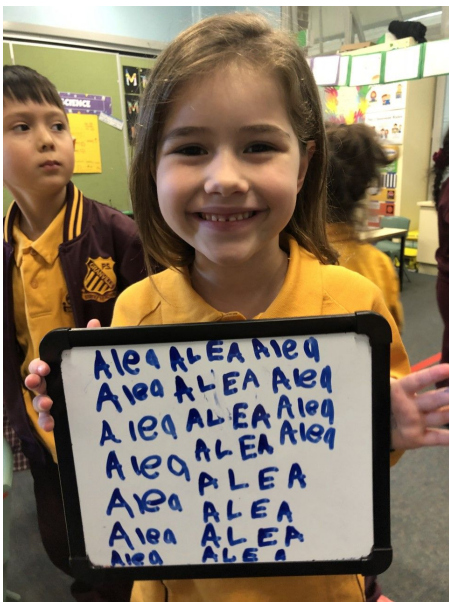 SCIENCE
Alea ALEA Alea
Alea ALEA Alea
Alea ALEA Alea
Alea ALEA Alea
Alea ALEA
Alea ALEA
Alea ALEA